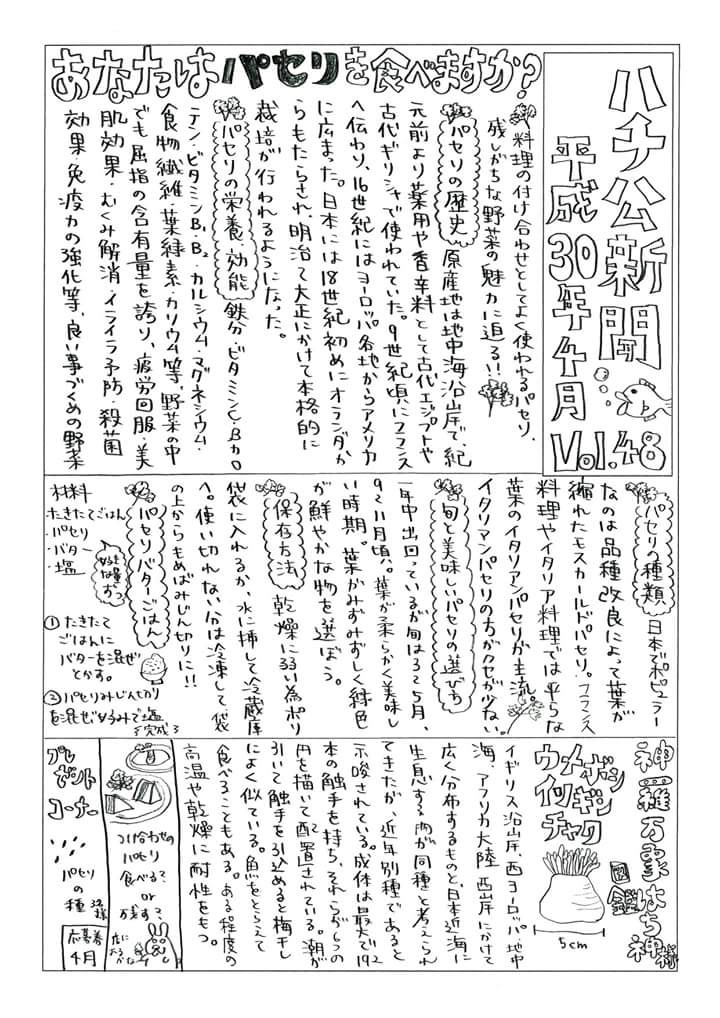 ハチ公新聞
平成30年4月
Vol.48
あなたはパセリを食べますか？
料理の付け合わせとしてよく使われるパセリ、
残しがちな野菜の魅力に迫る!!
パセリの歴史
原産地は地中海沿岸で、紀
元前より薬用や香辛料として古代エジプトや
古代ギリシャで使われていた。9世紀頃にフランス
へ伝わり、16世紀にはヨーロッパ各地からアメリカ
に広まった。日本には18世紀初めにオランダか
らもたらされ、明治〜大正にかけて本格的に
栽培が行われるようになった。
パセリの栄養・効能
鉄分・ビタミンC・Bカロ
テン・ビタミンB1、B2・カルシウム・マグネシウム・
食物繊維・葉緑素・カリウム等、野菜の中
でも屈指の含有量を誇り、疲労回服・美
肌効果・むくみ解消・イライラ予防・殺菌
効果・免疫力の強化等、良い事づくめの野菜
パセリの種類
日本でポピュラー
なのは品種改良によって葉が
縮れたモスカールドパセリ。フランス
料理やイタリア料理では平らな
葉のイタリアンパセリが主流。
イタリアンパセリの方がクセが少ない。
旬と美味しいパセリの選び方
一年中出回っているが旬は3〜5月、
9〜11月頃。葉が柔らかく美味し
い時期。葉がみずみずしく緑色
が鮮やかな物を選ぼう。
保存方法
乾燥に弱い為ポリ
袋に入れるか、水に挿して冷蔵庫
へ。使い切れない分は冷凍して、袋
の上からもめばみじん切りに!!
パセリバターごはん
材料
・たきたてごはん
・パセリ
・バター
・塩
好きな量ずつ
①たきたて
ごはんに
バターを混ぜ
とかす。
②パセリみじん切り
を混ぜ好みで塩
完成
神羅万象はち神様
図鑑
ウメボシ
イソギン
チャク
5cm
イギリス沿岸、西ヨーロッパ、地中
海、アフリカ大陸西岸にかけて
広く分布するものと、日本近海に
生息する両が同種と考えられ
てきたが、近年別種であると
示唆されている。成体は最大で192
本の触手を持ち、それらが6つの
円を描いて配置されている。潮が
引いて触手を引込めると梅干し
によく似ている。魚をとらえて
食べることもある。ある程度の
高温や乾燥に耐性をもつ。
つけ合わせの
パセリ
食べる？
or
残す？
プレ
ゼント
コーナー
パセリ
の
種
応募券
4月